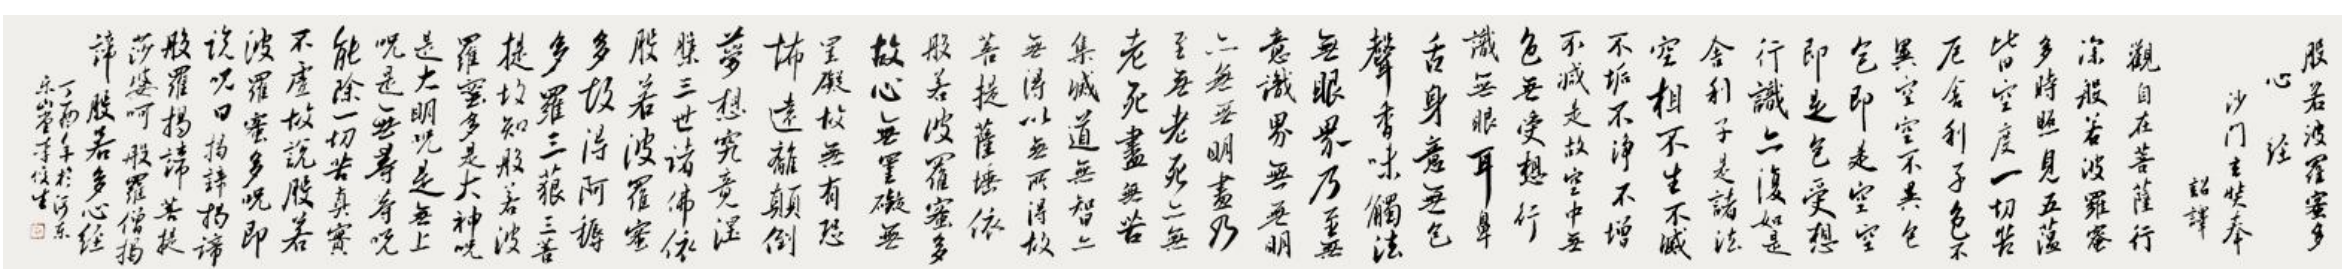 般若波羅蜜多
心經
沙門玄奘奉
詔譯
觀自在菩薩行
深般若波羅蜜
多時照見五蘊
皆空度一切苦
厄舍利子色不
異空空不異色
色即是空空
即是色受想
行識亦復如是
舍利子是諸法
空相不生不滅
不垢不淨不增
不減是故空中無
色無受想行
識無眼耳鼻
舌身意無色
聲香味觸法
無眼界乃至無
意識界無無明
亦無無明盡乃
至無老死亦無
老死盡無苦
集滅道無智亦
無得以無所得故
菩提薩埵依
般若波羅蜜多
故心無罣礙無
罣礙故無有恐
怖遠離顛倒
夢想究竟涅
槃三世諸佛依
般若波羅蜜
多故得阿耨
多羅三藐三菩
提故知般若波
羅蜜多是大神咒
是大明咒是無上
咒是無等等咒
能除一切苦真實
不虛故說般若
波羅蜜多咒即
說咒曰揭諦揭諦
般羅揭諦菩提
莎婆呵般羅僧揭
諦般若多心經
丁酉年於河東